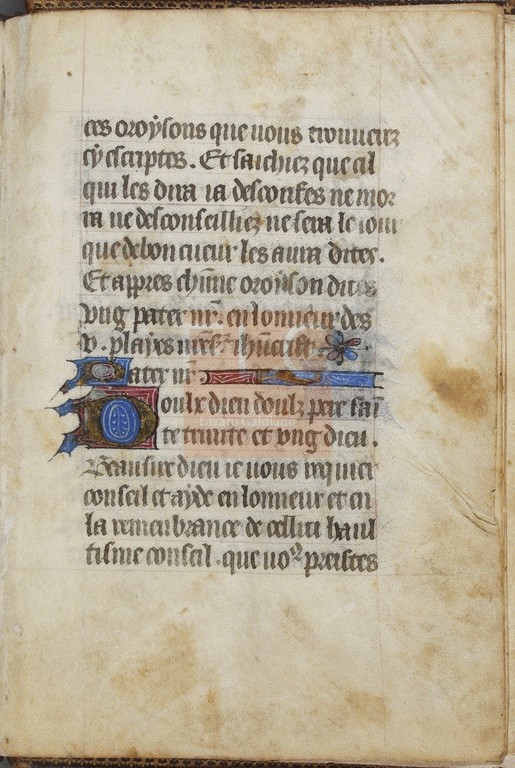 ces oroysons que vous trouuerez
cy escriptes. Et saichiez que cil
qui les dira ia desconfes ne mor
ra ne desconseilliez ne sera le iour
que de bon cueur les aura dites.
Et appres chūne oroyson dites
vng pater nr̄. en lonneur des
v. playes nre᷒ s.r ihūcrist
Pater nr̄
Doulx dieu doulz pere sai᷑
te trinite et vng dieu.
Beausire dieu ie vous requier
conseil et ayde en lonneur et en
la remenbrance de celluy hault
tisme conseil. que vo9 preistes
Lázaro Galdiano